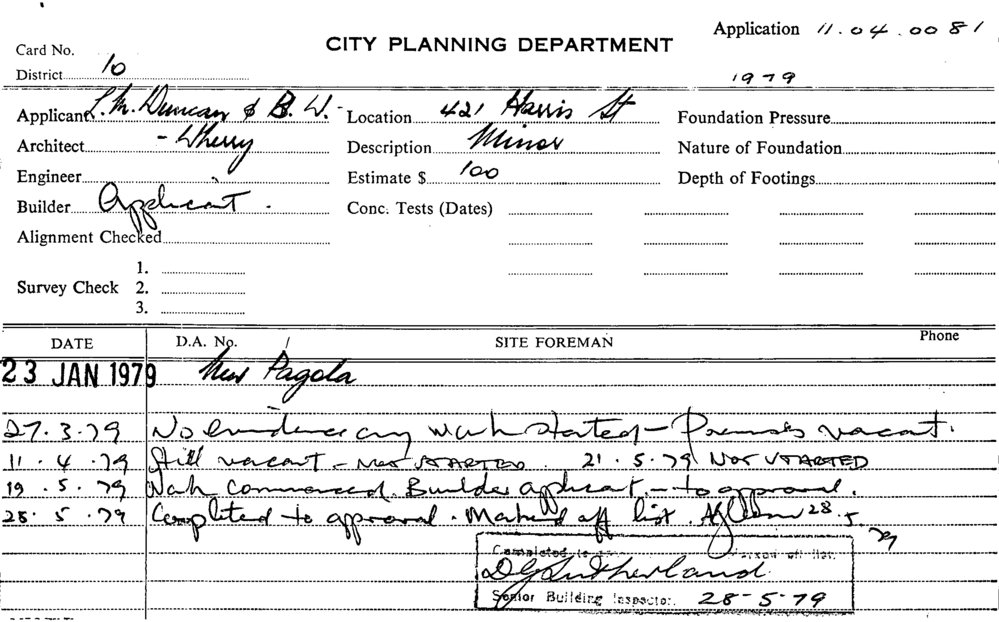 Application 11.04.0081
Card No.
CITY PLANNING DEPARTMENT
District 10
1979
Applicant L.M. Duncan & B.W.
Location 421 Harris St
Foundation Pressure
Architect - Wherry
Description Minor
Nature of Foundation
Engineer
Estimate $ 100
Depth of Footings
Builder Applicant.
Conc. Tests (Dates)
Alignment Checked
1.
Survey Check 2.
3.
DATE D.A. No. SITE FOREMAN Phone
23 JAN 1979 New Pagola
27.3.79 No evidence any work started - Premises vacant.
11.4.79 Still vacant - NOT STARTED 21.5.79 NOT STARTED
19.5.79 Work commenced. Builder applicant. - to approval.
28.5.79 Completed to approval. Marked off list. 28.5.79
Completed to marked off list.
D G Sutherland
Senior Building Inspector. 28-5-79